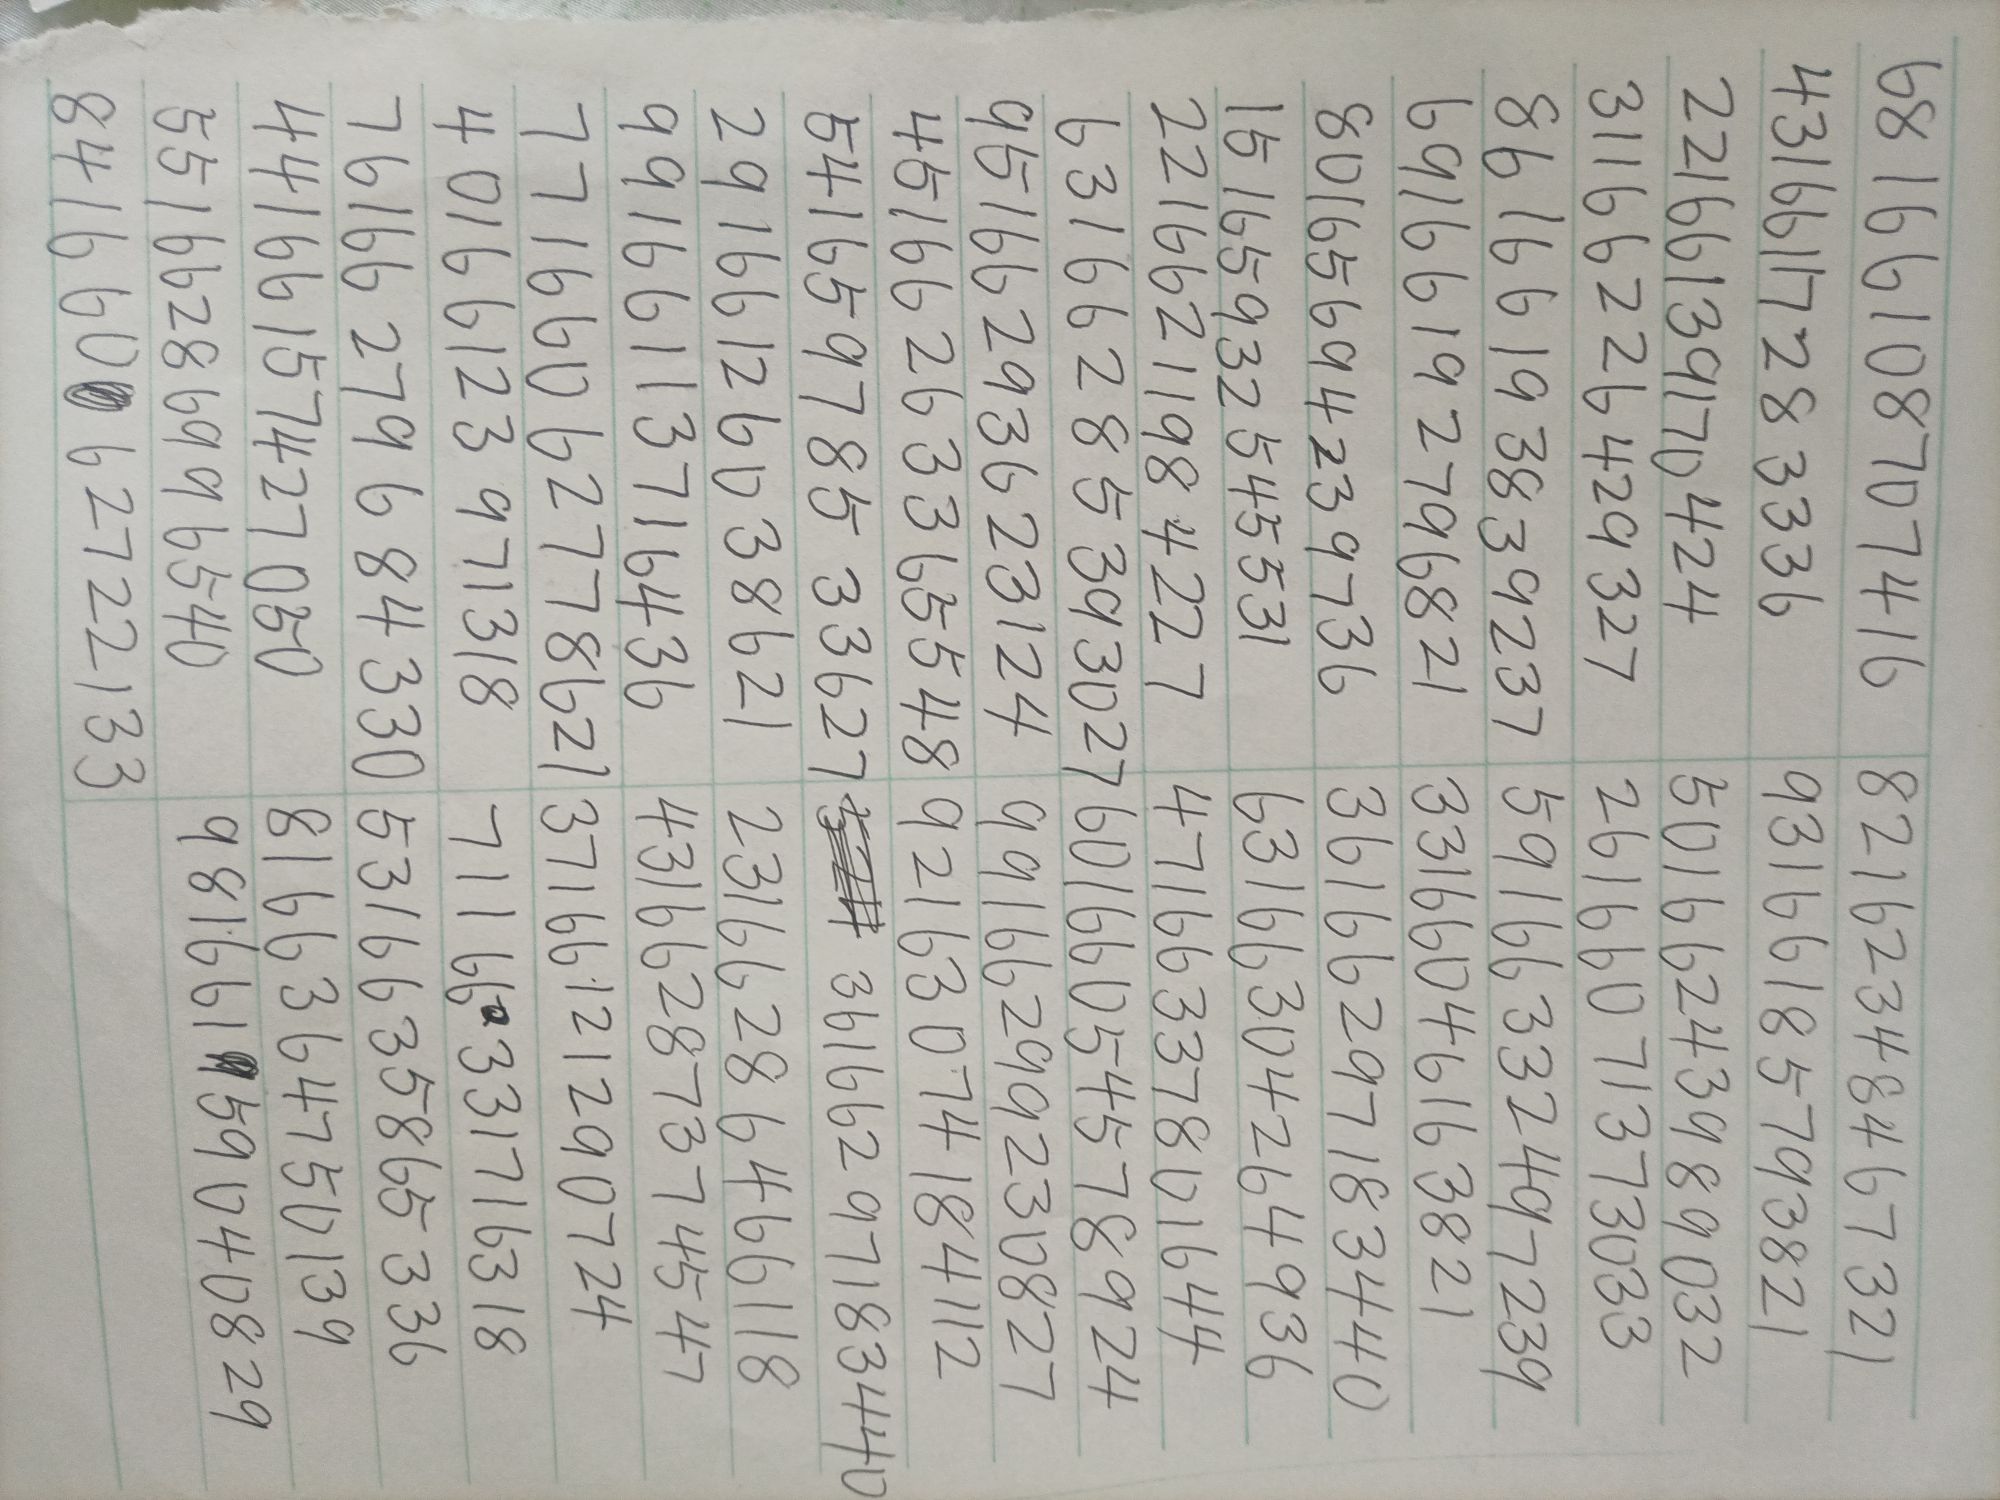 68166108707416 82162348467321
43166117283336 93166185793821
22166139170424 50166243989032
31166226429327 26166071373033
86166193839237 59166332497239
69166192796821 33166046163821
80165694239736 36166297183440
15165932545531 63166304264936
22166211984227 47166337801644
63166285393027 60166054578924
95166293623124 99166299230827
45166263365548 92163074184112
54165978533627 36166297183440
29166126038621 23166286466118
99166113716436 43166287374547
77166062778621 37166121290724
40166123971318 71166331716318
76166279684330 5316635865336
44166157427050 8166364750139
55166286996540 98166159040829
84166062722133